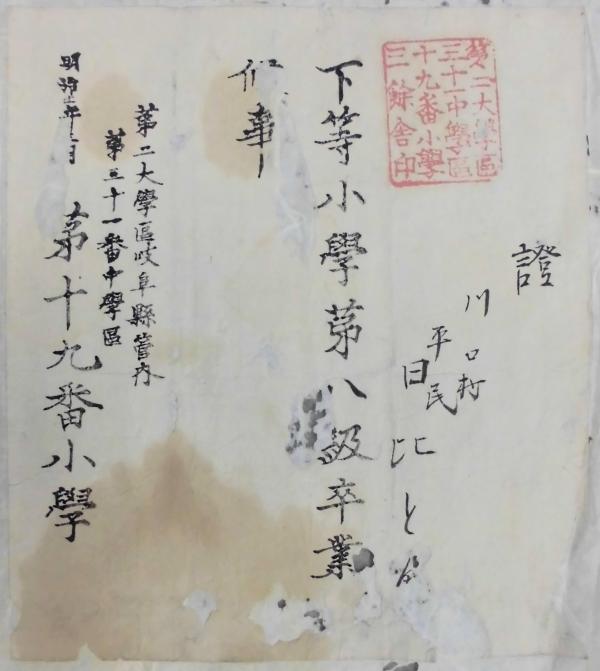 第二大學區
三十一中學區
十九番小學
三餘舍印
證
川口村
平民
日比と
下等小學第八級卒業
候事
第二大學區岐阜縣管内
第三十一番中學區
第十九番小學
明治 年 月